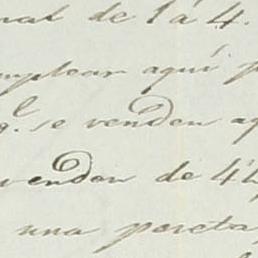 nal de 1 á 4.
mplear aquí p
q.l se venden aq
venden de 4
una peseta